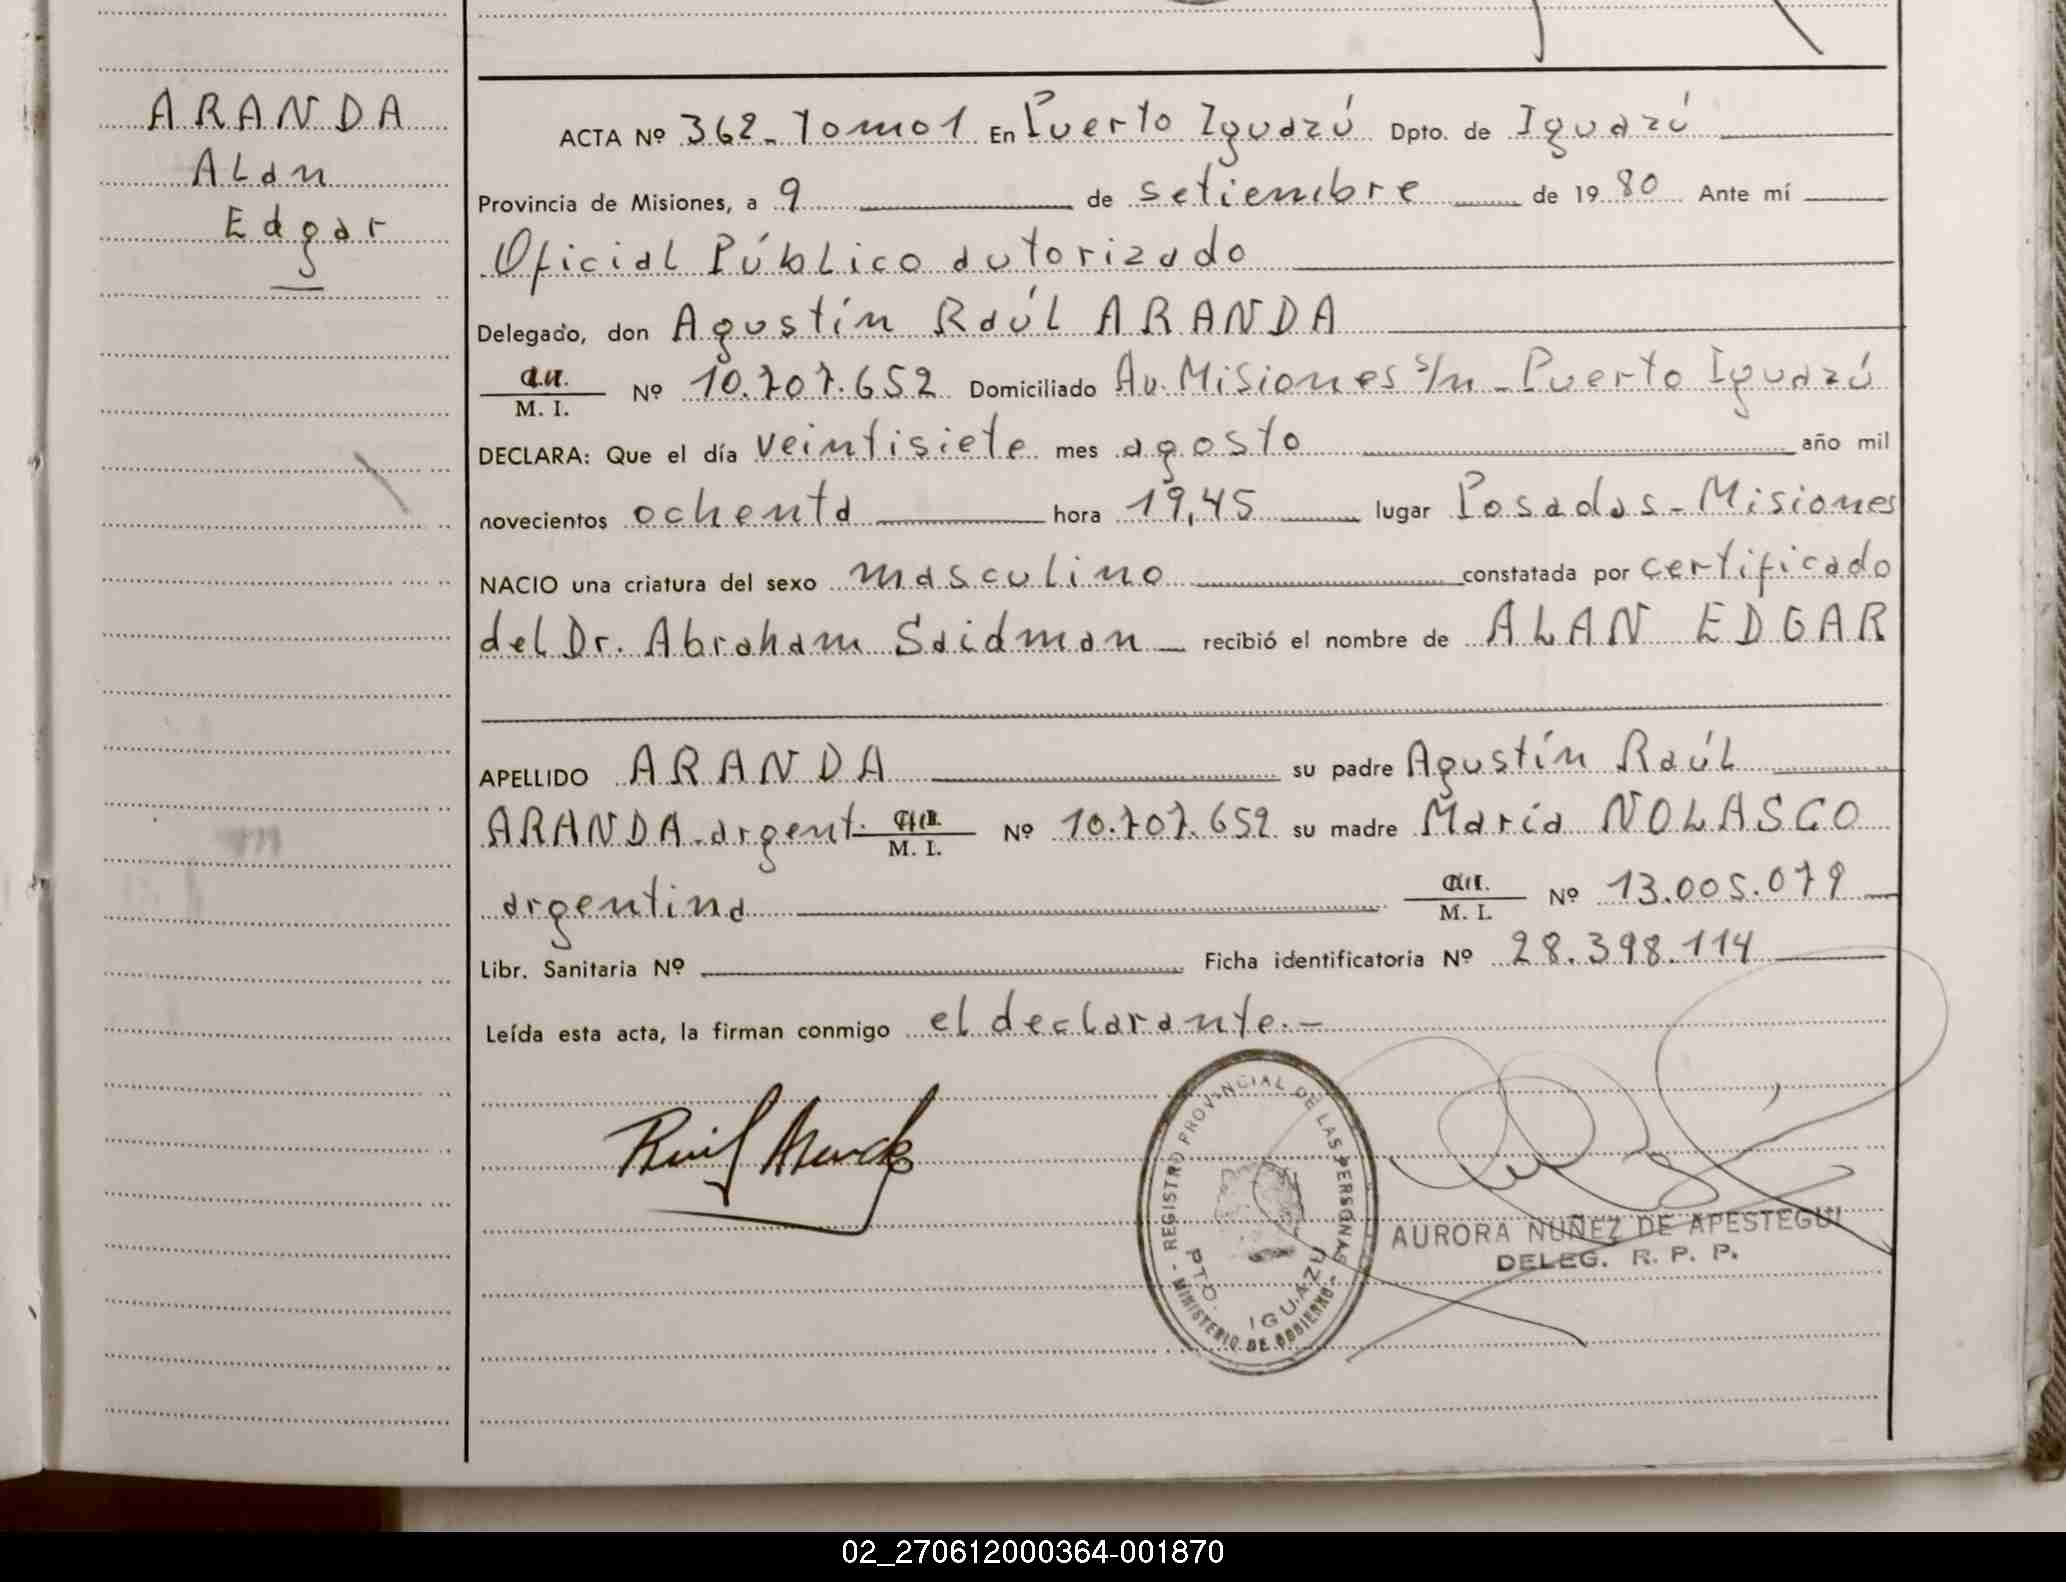 ARANDA
Alan
Edgar
ACTA Nº 362-Tomo1 En Puerto Iguazú Dpto. de Iguazú
Provincia de Misiones, a 9 de setiembre de 1980 Ante mí
Oficial Público autorizado
Delegado, don Agustín Raúl ARANDA
M. I. Nº 10.707.652 Domiciliado Av. Misiones s/n - Puerto Iguazú
DECLARA: Que el día veintisiete mes agosto año mil
novecientos ochenta hora 19,45 lugar Posadas - Misiones
NACIO una criatura del sexo masculino constatada por certificado
del Dr. Abraham Saidman recibió el nombre de ALAN EDGAR
APELLIDO ARANDA su padre Agustín Raúl
ARANDA - argent. M. I. Nº 10.707.652 su madre María NOLASCO
argentina M. I. Nº 13.005.079
Libr. Sanitaria Nº Ficha identificatoria Nº 28.398.114
Leída esta acta, la firman conmigo el declarante.-
- REGISTRO PROVINCIAL DE LAS PERSONAS -
MINISTERIO DE GOBIERNO
PTO. IGUAZU
AURORA NUÑEZ DE APESTEGUI
DELEG. R. P. P.
02_270612000364-001870